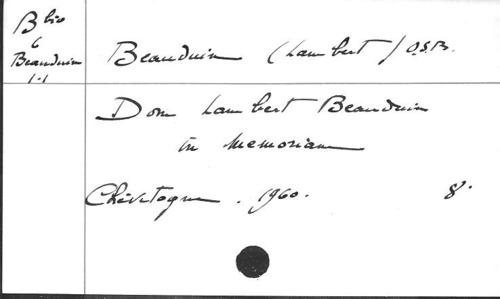 B bio
6
Beauduin
1-1
Beauduin (Lambert) O.S.B.
Dom Lambert Beauduin
in memoriam
Chevetogne . 1960. 8°